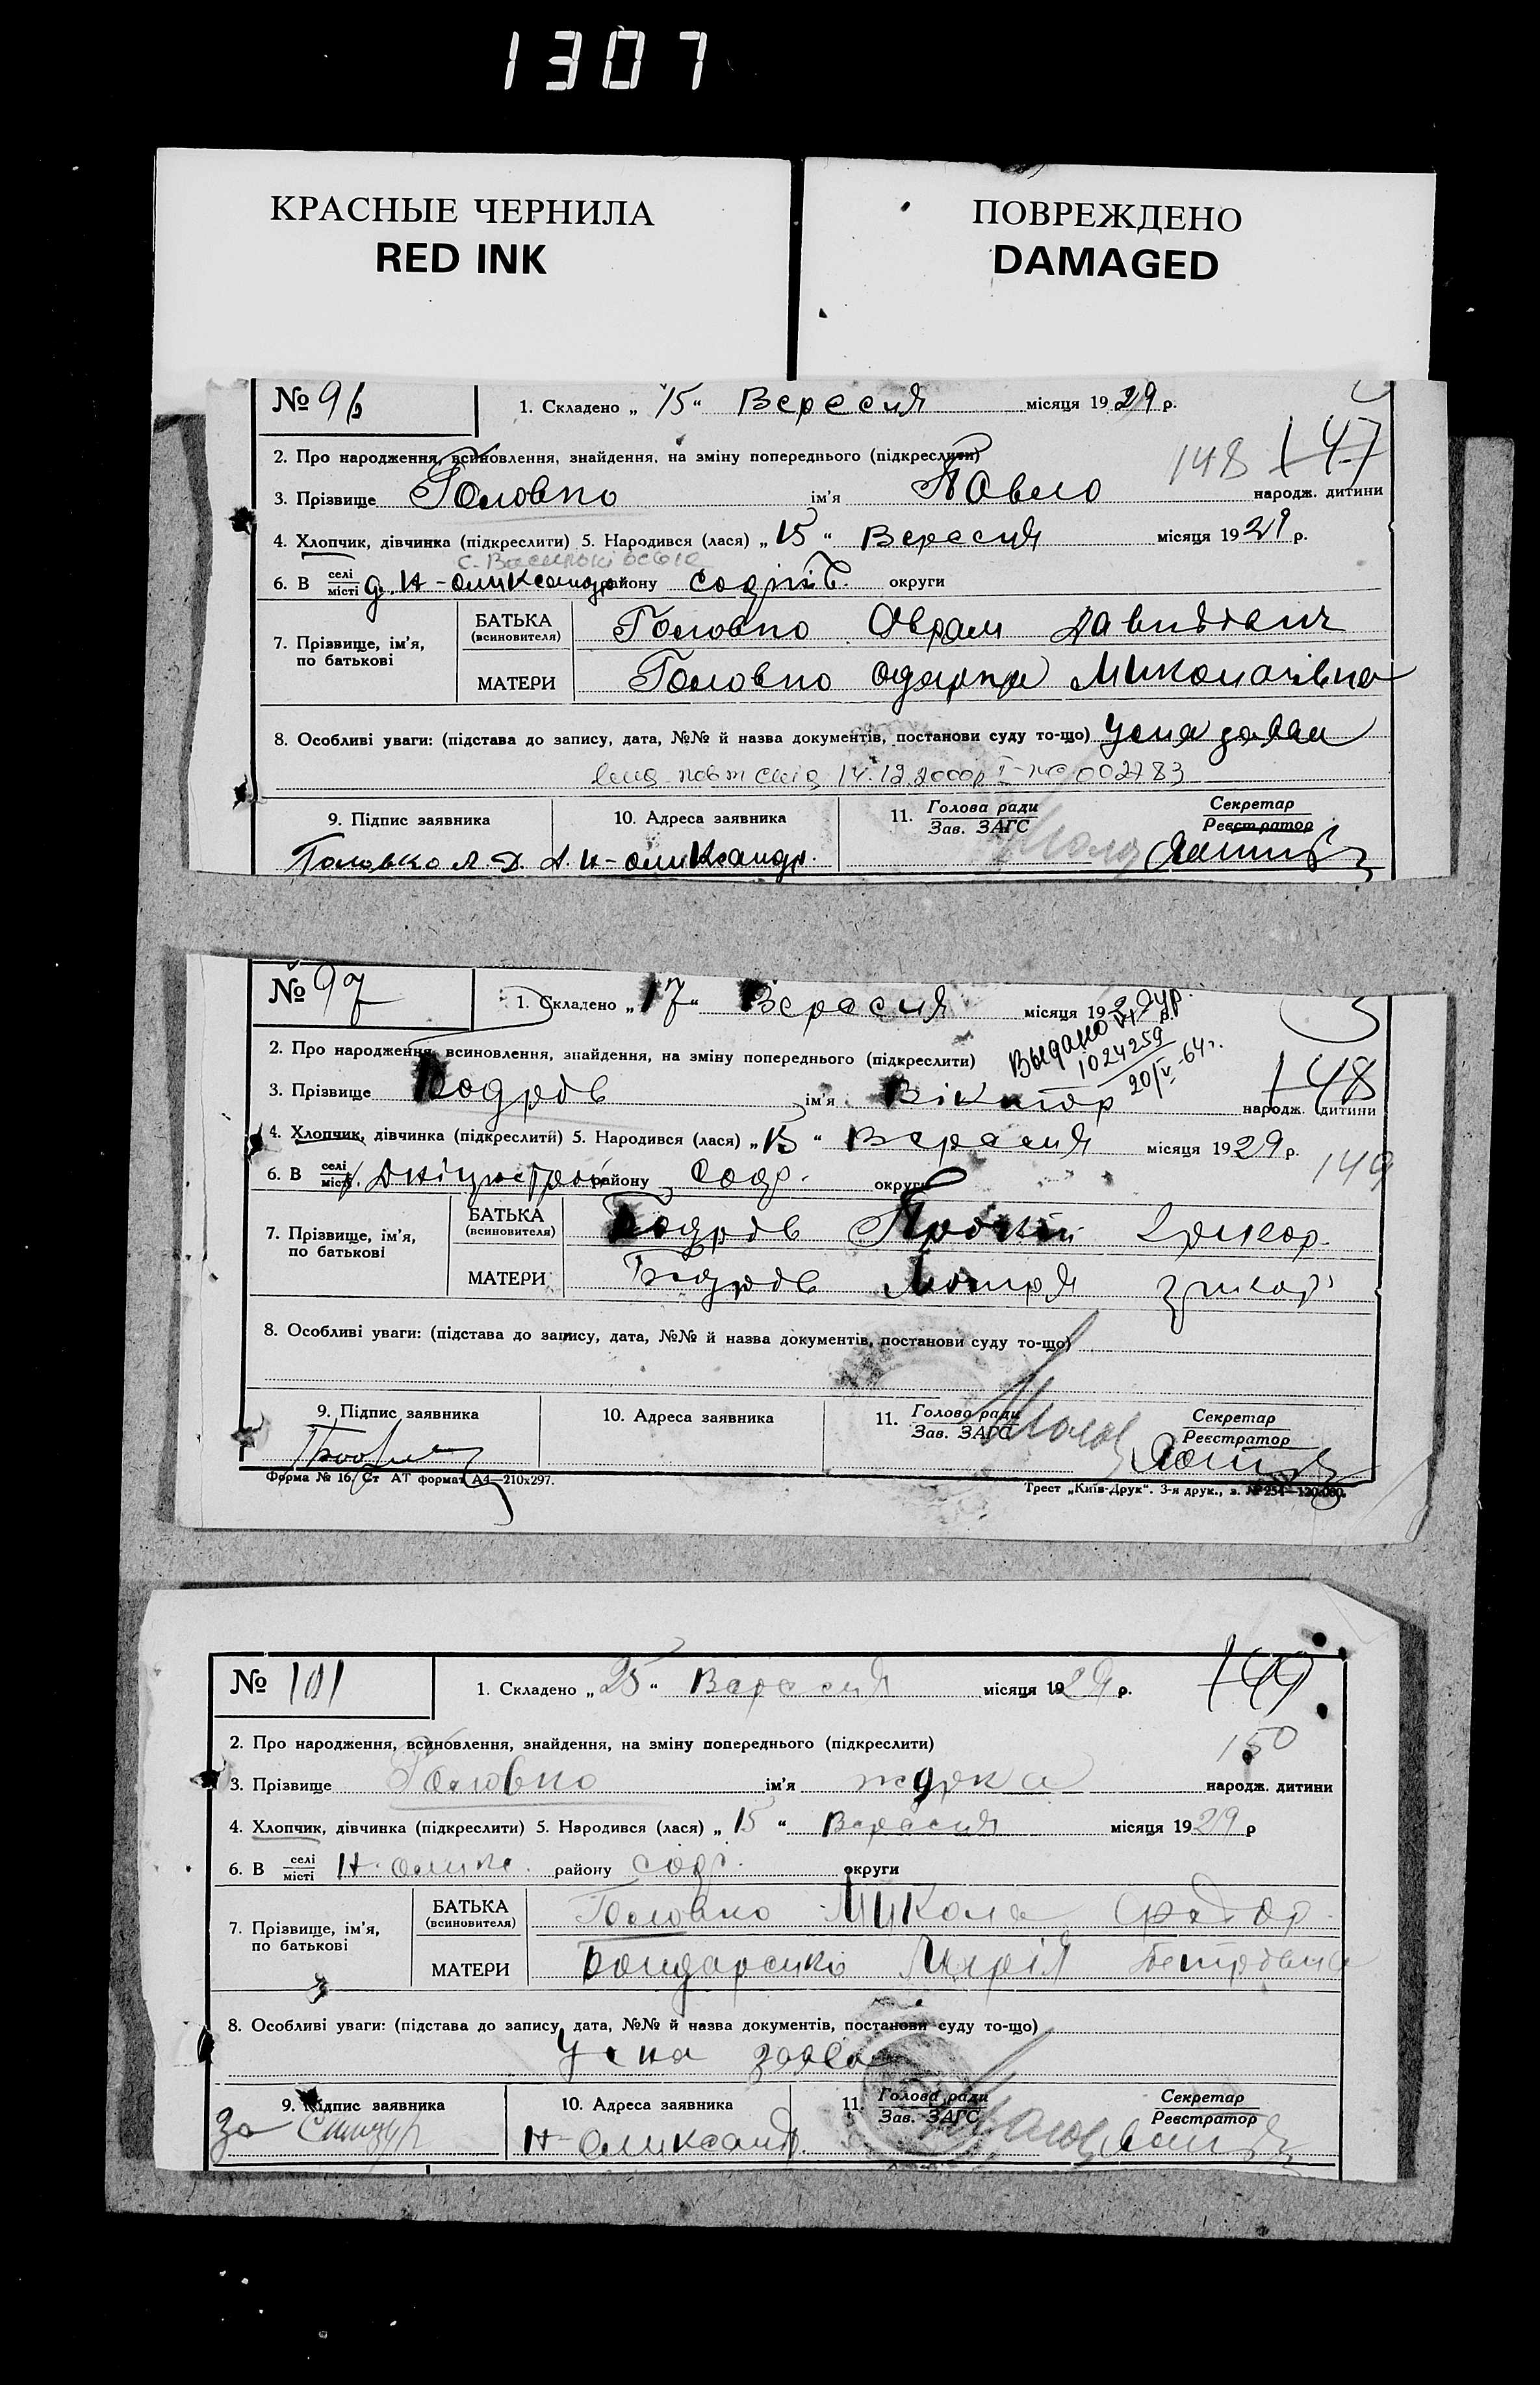 1307
КРАСНЫЕ ЧЕРНИЛА
RED INK
ПОВРЕЖДЕНО
DAMAGED
№ 96 1. Складено „ 15 “ Вересня місяця 1929 р.
2. Про народження, всиновлення, знайдення, на зміну попереднього (підкреслити) 148 147
3. Прізвище Головко ім'я Павло народж. дитини
4. Хлопчик, дівчинка (підкреслити) 5. Народився (лася) „ 15 “ Вересня місяця 1929 р.
6. В селі місті району округи
7. Прізвище, ім'я, по батькові
БАТЬКА (всиновителя) Головко Аврам Давидович
МАТЕРИ Головко Одарка Миколаївна
8. Особливі уваги: (підстава до запису, дата, №№ й назва документів, постанови суду то-що) Усна заява
14.12.2000р 002783
9. Підпис заявника 10. Адреса заявника 11. Голова ради Зав. ЗАГС Секретар Реєстратор
Головко А. Д.
№ 97 1. Складено „ 17 “ Вересня місяця 1929 р.
Выдано
1024259
20/V-64г.
2. Про народження, всиновлення, знайдення, на зміну попереднього (підкреслити)
3. Прізвище ім'я Віктор народж. дитини 148
4. Хлопчик, дівчинка (підкреслити) 5. Народився (лася) „ “ Вересня місяця 1929 р. 149
6. В селі місті району округи
7. Прізвище, ім'я, по батькові
БАТЬКА (всиновителя)
МАТЕРИ Мотря
8. Особливі уваги: (підстава до запису, дата, №№ й назва документів, постанови суду то-що)
9. Підпис заявника 10. Адреса заявника 11. Голова ради Зав. ЗАГС Секретар Реєстратор
Форма № 16. Ст АТ формат А4—210х297. Трест „Київ-Друк“. 3-я друк., з. № 254—120.000.
№ 101 1. Складено „ 25 “ Вересня місяця 1929 р. 149
2. Про народження, всиновлення, знайдення, на зміну попереднього (підкреслити) 150
3. Прізвище Головко ім'я народж. дитини
4. Хлопчик, дівчинка (підкреслити) 5. Народився (лася) „ 15 “ Вересня місяця 1929 р
6. В селі місті району округи
7. Прізвище, ім'я, по батькові
БАТЬКА (всиновителя) Головко Микола
МАТЕРИ Бондаренко Марія Петровна
8. Особливі уваги: (підстава до запису, дата, №№ й назва документів, постанови суду то-що)
Усна заява
9. Підпис заявника 10. Адреса заявника 11. Голова ради Зав. ЗАГС Секретар Реєстратор